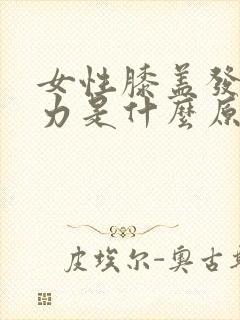 女性膝盖發
力是什麼原
皮埃尔-奧古